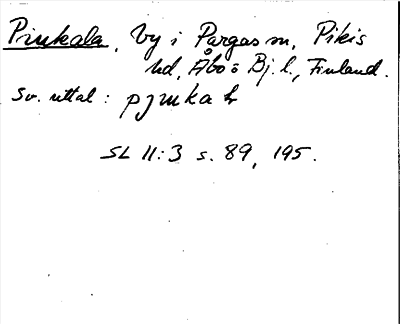 Pinkala, by i Pargas sn, Pikis
hd, Åbo o Bj. l., Finland.
Sv. uttal :
SL 11:3 s. 89, 195.